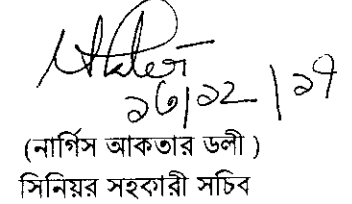 ১৩/১২/১৭
(নার্গিস আকতার ডলী )
সিনিয়র সহকারী সচিব